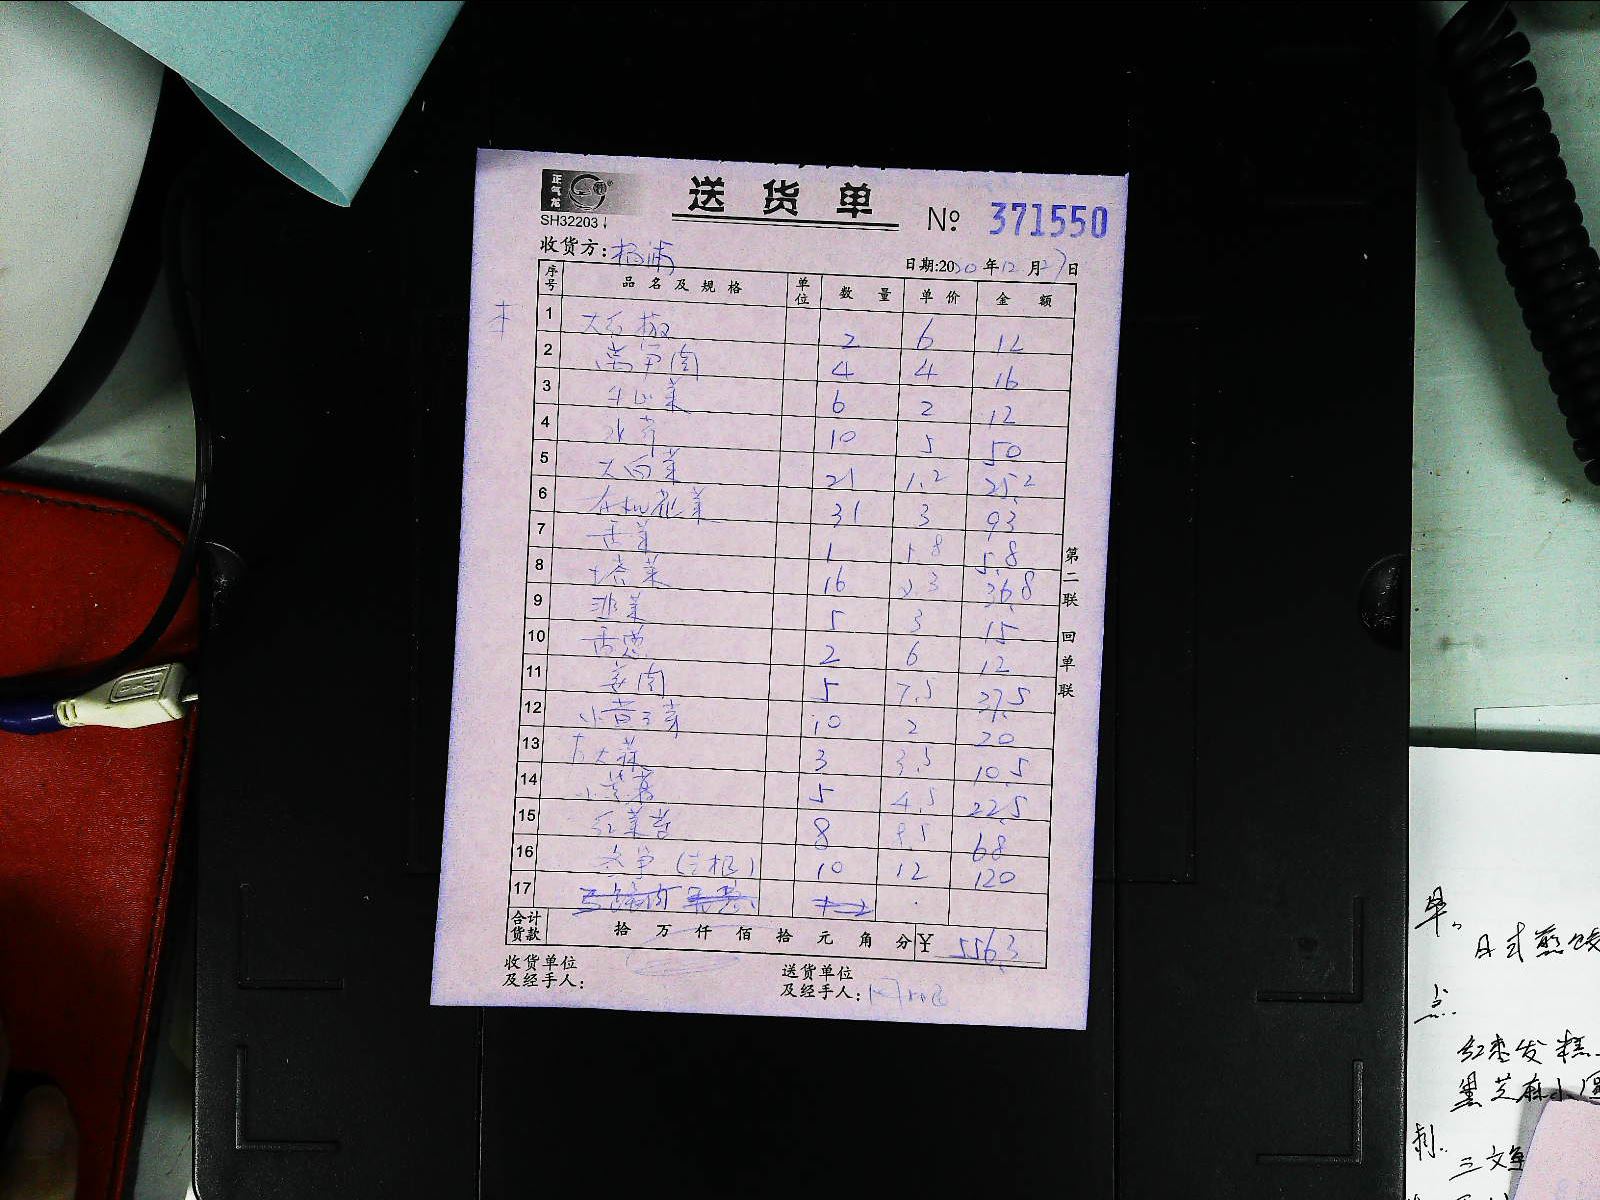 正气龙
送货单
SH32203
№ 371550
收货方：杨浦
日期:2020年12月27日
序号 品名及规格 单位 数量 单价 金额
1 大石椒 2 6 12
2 莴笋肉 4 4 16
3 牛心菜 6 2 12
4 水芹 10 5 50
5 大白菜 21 1.2 25.2
6 有机花菜 31 3 93
7 8 5.8
8 塔菜 16 2.3 36.8
9 韭菜 5 3 15
10 香葱 2 6 12
11 姜肉 5 7.5 37.5
12 小黄豆芽 10 2 20
13 大蒜 3 3.5 10.5
14 5 4.5 22.5
15 红菜苔 8 8.5 68
16 冬笋 10 12 120
17
合计货款 拾万仟佰拾元角分 ¥ 556.3
收货单位及经手人：
送货单位及经手人：
第二联 回单联
单。
日式煎饺
点
红枣发糕
黑芝麻小